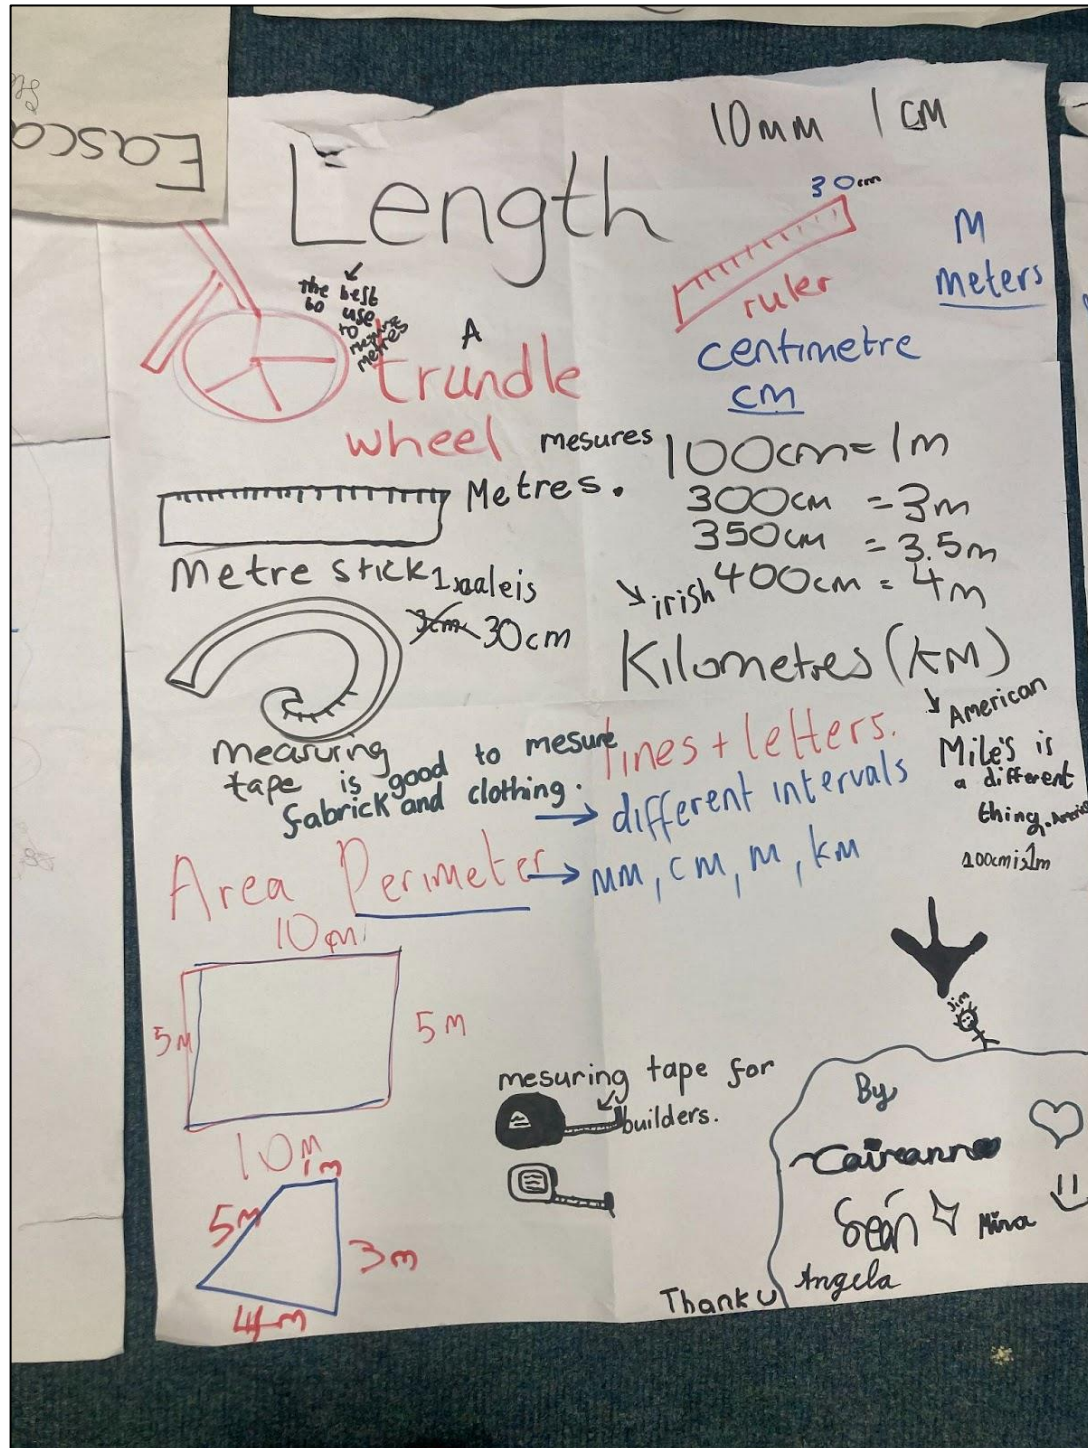 Easca
10mm 1cm
Length
30cm
ruler
M
meters
the best
to use
to
mesure
metres
A
trundle
wheel mesures
Metres.
centimetre
cm
100cm=1m
300cm =3m
350cm =3.5m
400cm = 4m
Metre stick
30cm
irish
Kilometres (KM)
American
Mile's is
a different
thing.
100cm is 1m
measuring
tape is good to mesure
fabrick and clothing.
lines + letters.
different intervals
Area Perimeter
mm, cm, m, km
10m
5m
5m
10m
1m
5m
3m
4m
mesuring tape for
builders.
Jim
By
Caireann
Seán Mina
Angela
Thank u